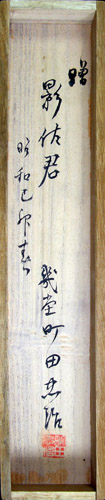 贈
影佐君
昭和己卯春
幾堂町田忠治